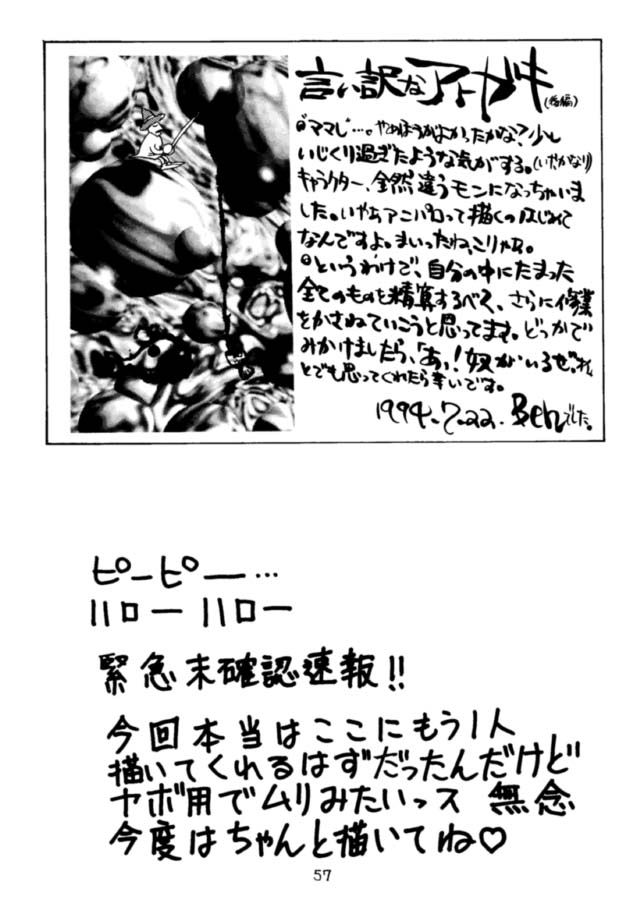 言い訳なアトガキ(後編)
•ママレ…。やめたほうがよかったかな?少し
いじくり過ぎたような気がする。(いやかなり)
キャラクター、全然違うモンになっちゃいま
した。いやぁアニパロって描くのはじめて
なんですよ。まいったね、こりゃぁ。
•というわけで、自分の中にたまった
全てのものを精算するべく、さらに修業
をかさねていこうと思ってます。どっかで
みかけましたら、「あ、!奴がいるぜ。」
とでも思ってくれたら幸いです。
1994.7.22. Benでした。
ピーピー…
ハローハロー
緊急末確認速報!!
今回本当はここにもう1人
描いてくれるはずだったんだけど
ヤボ用でムリみたいっス 無念
今度はちゃんと描いてね♡
57